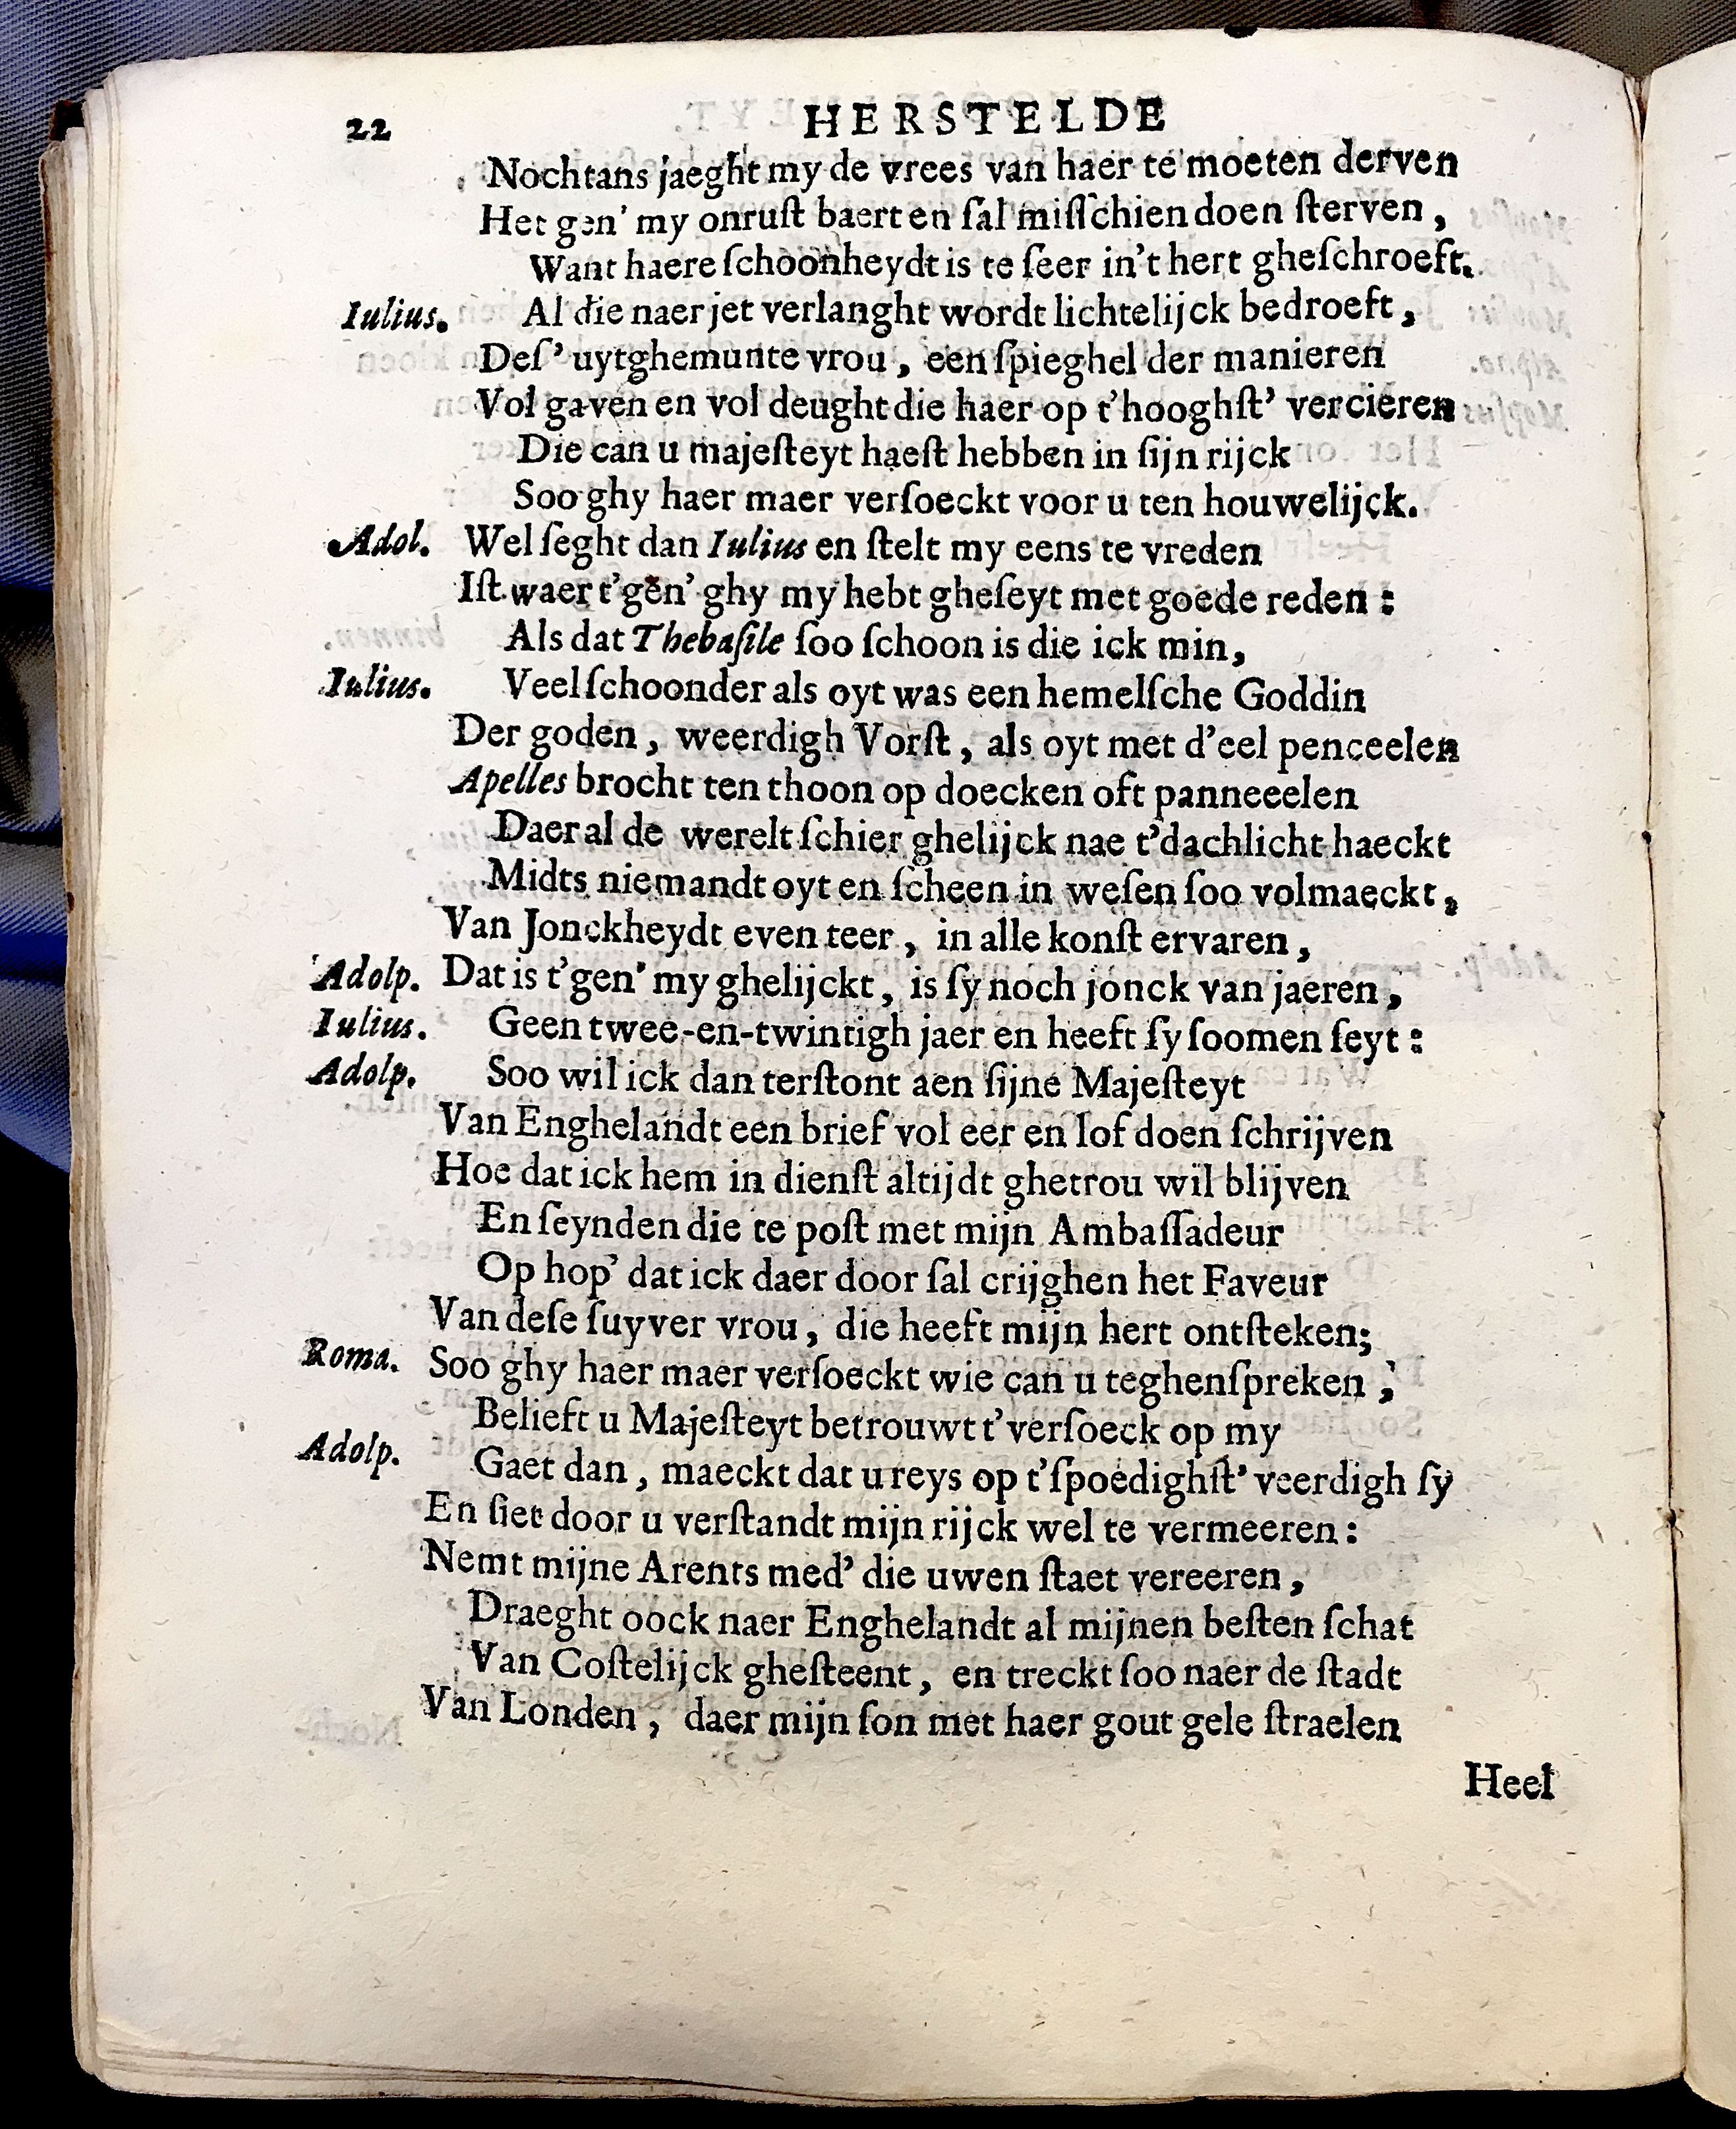 22 HERSTELDE
Nochtans jaeght my de vrees van haer te moeten derven
Het gen' my onruſt baert en ſal miſſchien doen ſterven,
Want haere ſchoonheydt is te ſeer in't hert gheſchroeft.
Iulius. Al die naer jet verlanght wordt lichtelijck bedroeft,
Deſ' uytghemunte vrou, een ſpieghel der manieren
Vol gaven en vol deught die haer op t'hooghſt' vercieren
Die can u majeſteyt haeſt hebben in ſijn rijck
Soo ghy haer maer verſoeckt voor u ten houwelijck.
Adol. Wel ſeght dan Iulius en ſtelt my eens te vreden
Iſt waer t'gen' ghy my hebt gheſeyt met goede reden:
Als dat Thebaſile ſoo ſchoon is die ick min,
Iulius. Veel ſchoonder als oyt was een hemelſche Goddin
Der goden, weerdigh Vorſt, als oyt met d'eel penceelen
Apelles brocht ten thoon op doecken oft panneeelen
Daer al de werelt ſchier ghelijck nae t'dachlicht haeckt
Midts niemandt oyt en ſcheen in weſen ſoo volmaeckt,
Van Jonckheydt even teer, in alle konſt ervaren,
Adolp. Dat is t'gen' my ghelijckt, is ſy noch jonck van jaeren,
Iulius. Geen twee-en-twintigh jaer en heeft ſy ſoomen ſeyt:
Adolp. Soo wil ick dan terſtont aen ſijne Majeſteyt
Van Enghelandt een brief vol eer en lof doen ſchrijven
Hoe dat ick hem in dienſt altijdt ghetrou wil blijven
En ſeynden die te poſt met mijn Ambaſſadeur
Op hop' dat ick daer door ſal crijghen het Faveur
Van deſe ſuyver vrou, die heeft mijn hert ontſteken;
Roma. Soo ghy haer maer verſoeckt wie can u teghenſpreken,
Belieft u Majeſteyt betrouwt t'verſoeck op my
Adolp. Gaet dan, maeckt dat u reys op t'ſpoedighſt' veerdigh ſy
En ſiet door u verſtandt mijn rijck wel te vermeeren:
Nemt mijne Arents med' die uwen ſtaet vereeren,
Draeght oock naer Enghelandt al mijnen beſten ſchat
Van Coſtelijck gheſteent, en treckt ſoo naer de ſtadt
Van Londen, daer mijn ſon met haer gout gele ſtraelen
Heel